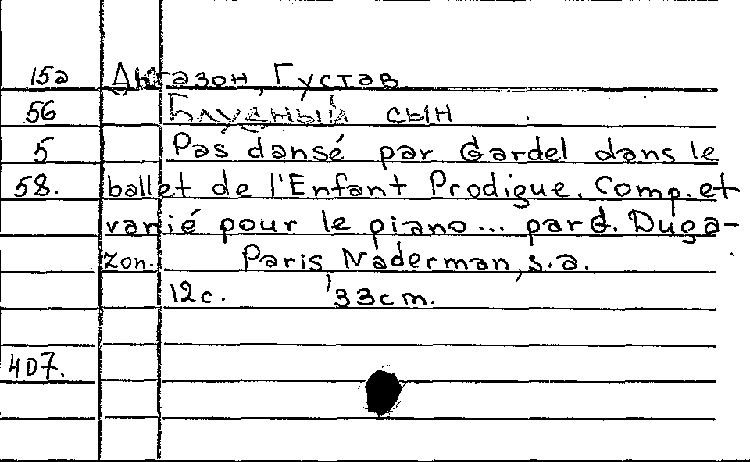 15а Дюгазон, Густав
56 Блудный сын
5 Pas dansé par Gardel dans le
58. ballet de l'Enfant Prodigue. Comp. et
varié pour le piano... par G. Duga-
zon. Paris, Naderman, s.a.
12c. 33cm.
407.